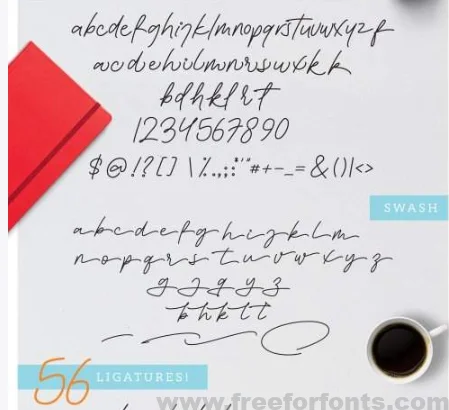 abcdefghijklmnopqrstuvwxyz f
acdehilmnrsuwxkk
bdhklrt
1234567890
$@!?[]\%.,;:"'*#+-_=&()|<>
SWASH
abcdefghijklm
nopqrstuvwxyz
gjqyz
bhklt
56 LIGATURES!
www.freeforfonts.com